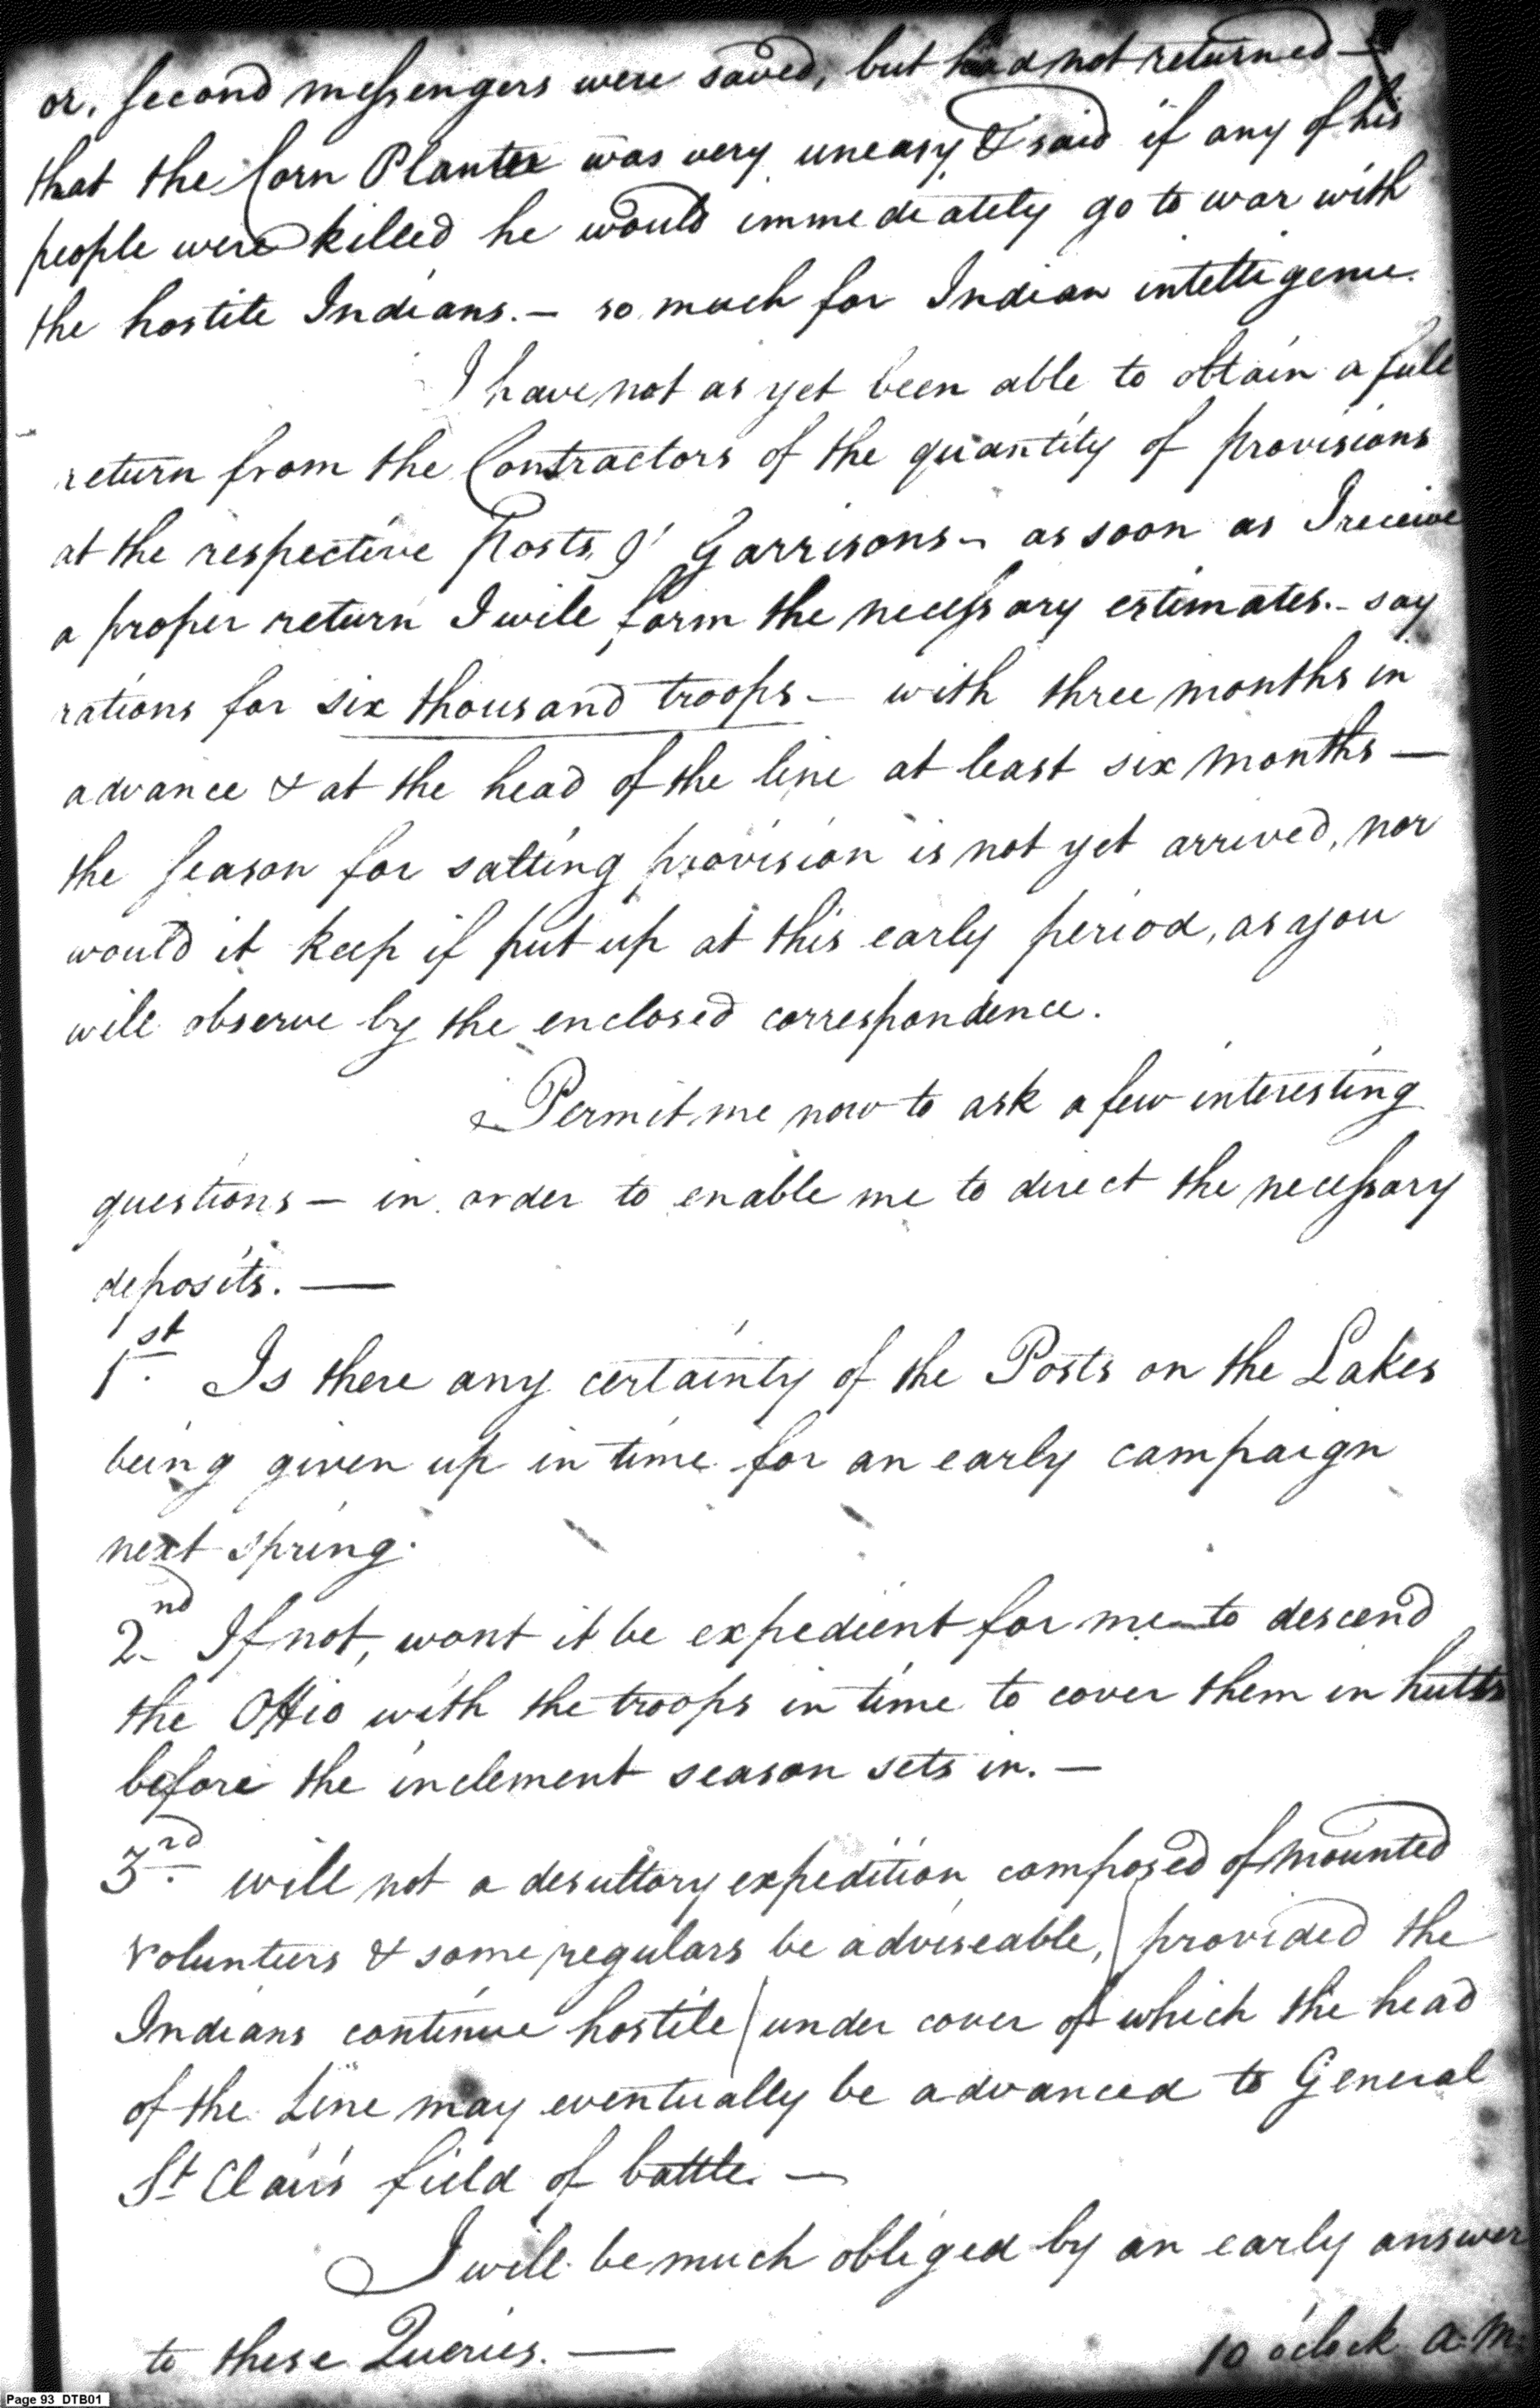 or, second messengers were saved, but had not returned —
that the Corn Planter was very uneasy & said if any of his
people were killed he would immediately go to war with
the hostile Indians. — so much for Indian intelligence.
I have not as yet been able to obtain a full
return from the Contractors of the quantity of provisions
at the respective Posts & Garrisons — as soon as I receive
a proper return I will form the necessary estimates. — say
rations for six thousand troops — with three months in
advance & at the head of the line at least six months —
the season for salting provision is not yet arrived, nor
would it keep if put up at this early period, as you
will observe by the enclosed correspondence.
Permit me now to ask a few interesting
questions — in order to enable me to direct the necessary
deposits. —
1st. Is there any certainty of the Posts on the Lakes
being given up in time for an early campaign
next spring.
2nd If not, wont it be expedient for me to descend
the Ohio with the troops in time to cover them in hutts
before the inclement season sets in. —
3rd. will not a desultory expedition composed of mounted
Volunteers & some regulars be adviseable, (provided the
Indians continue hostile) under cover of which the head
of the Line may eventually be advanced to General
St Clair's field of battle. —
I will be much obliged by an early answer
to these Queries. —
10 o'clock a.m.
Page 93 DTB01